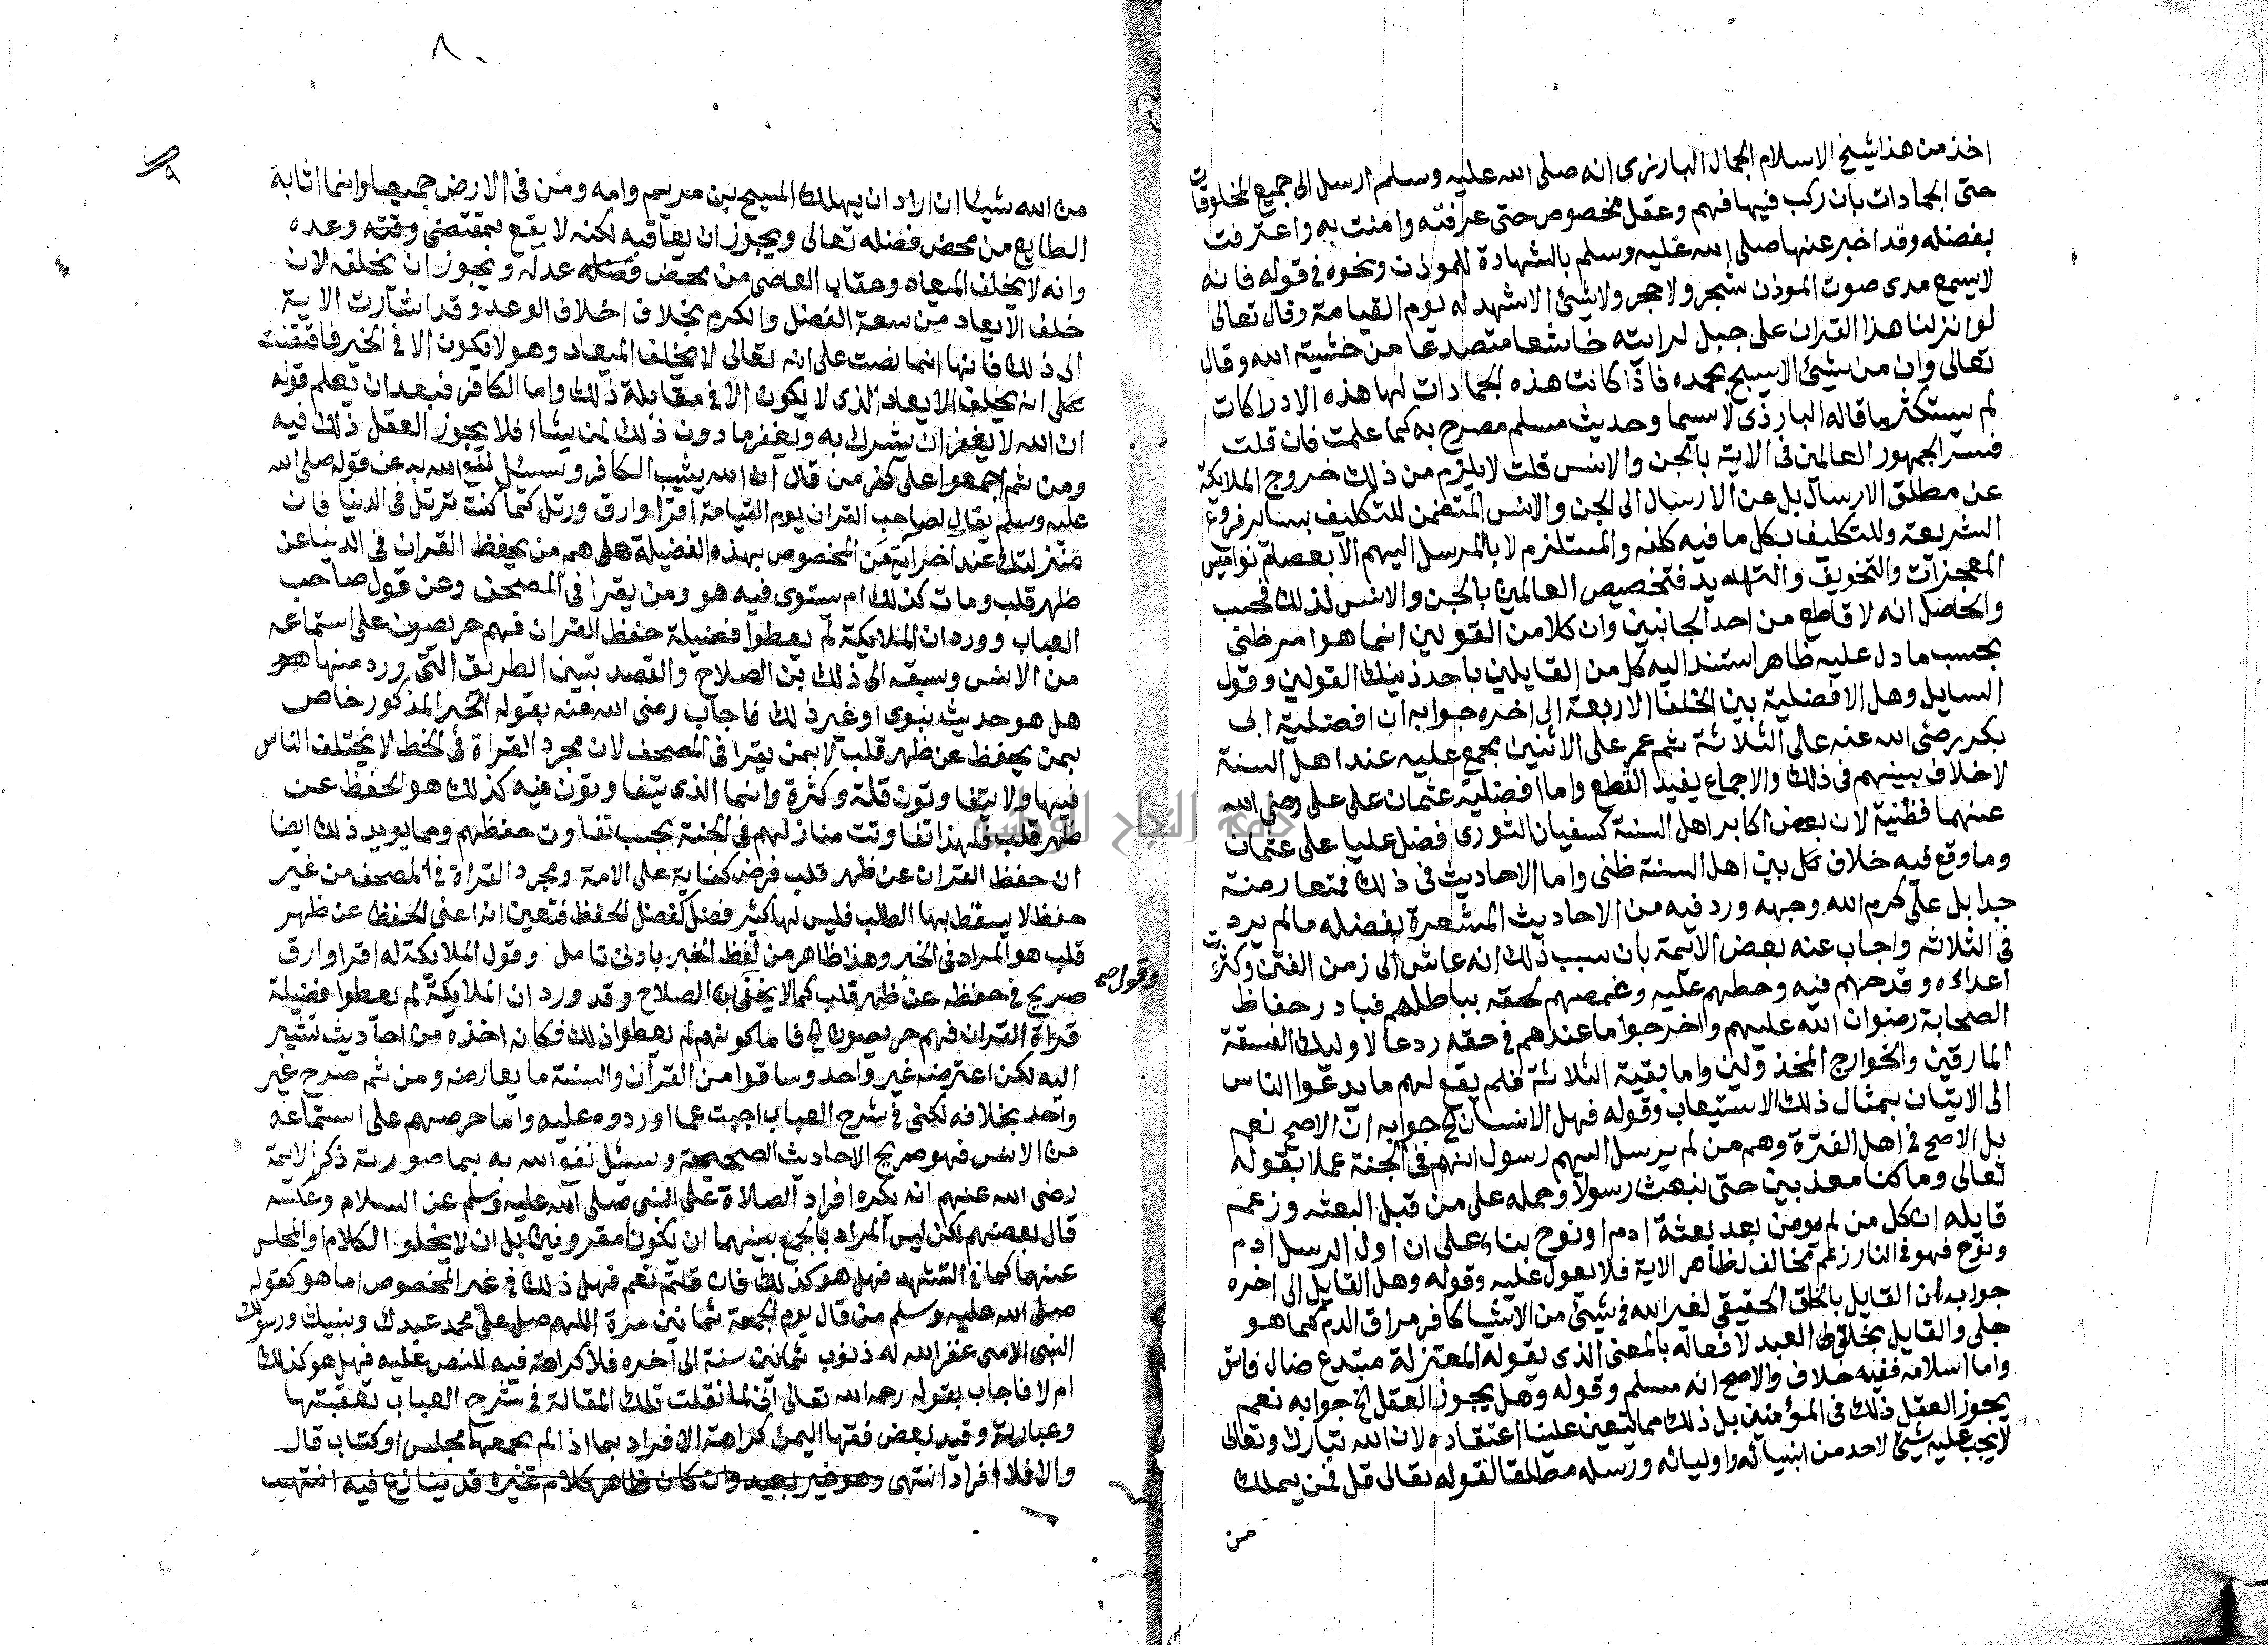 اخذ من هذا شيخ الاسلام الجمال البارزى انه صلى الله عليه وسلم ارسل الى جميع المخلوقات
حتى الجمادات بان ركب فيها فهم وعقل مخصوص حتى عرفته وامنت به واعترفت
بفضله وقد اخبر عنها صلى الله عليه وسلم بالشهادة للموذن ونحوه فى قوله فانه
لا يسمع مدى صوت الموذن شجر ولا حجر ولا شئ الا شهد له يوم القيامة وقال تعالى
لو انزلنا هذا القران على جبل لرايته خاشعا متصدعا من خشية الله وقال
تعالى وان من شئ الا يسبح بحمده فاذا كانت هذه الجمادات لها هذه الادراكات
لم يستكثر ما قاله البارزى لا سيما وحديث مسلم مصرح به كما علمت فان قلت
فسر الجمهور العالمين فى الاية بالجن والانس قلت لا يلزم من ذلك خروج الملايكة
عن مطلق الارسال بل عن الارسال الى الجن والانس المتضمن للتكليف بساير فروع
الشريعة وللتكليف بكل ما فيه كلفه والمستلزم لا بالمرسل اليهم الا بعصاة نواميس
المعجزات والتخويف والتهديد فتخصيص العالمين بالجن والانس لذلك فحسب
والحاصل انه لا قاطع من احد الجانبين وان كلا من القولين انما هو امر ظنى
بحسب ما دل عليه ظاهر استند اليه كل من القايلين باحد ذينك القولين وقول
السايل وهل الافضلية بين الخلفا الاربعة الى اخره جوابه ان افضلية ابى
بكر رضى الله عنه على الثلاثة ثم عمر على الاثنين مجمع عليه عند اهل السنة
لا خلاف بينهم فى ذلك والاجماع يفيد القطع واما افضلية عثمان على على رضى الله
عنهما فظنية لان بعض اكابر اهل السنة كسفيان الثورى فضل عليا على عثمان
وما وقع فيه خلاف كل بين اهل السنة ظنى واما الاحاديث فى ذلك فمتعارضة
جدا بل على كرم الله وجهه ورد فيه من الاحاديث المشعرة بفضله ما لم يرد
فى الثلاثه واجاب عنه بعض الايمة بان سبب ذلك انه عاش الى زمن الفتن وكثرت
اعداءه وقدحهم فيه وحطهم عليه وغمصهم لحقه بباطلهم فبادر حفاظ
الصحابة رضوان الله عليهم واخرجوا ما عندهم فى حقه ردعا لاوليك الفسقة
المارقين والخوارج المخذولين واما بقية الثلاثة فلم يقع لهم ما يدعوا الناس
الى الاتيان بمثال ذلك الاستيعاب وقوله فهل الانسان الخ جوابه ان الاصح نعم
بل الاصح فى اهل الفترة وهم من لم يرسل اليهم رسول انهم فى الجنة عملا بقوله
تعالى وما كنا معذبين حتى نبعث رسولا وحمله على من قبل البعثه وزعم
قايله ان كل من لم يومن بعد بعثة ادم او نوح بناء على ان اول الرسل ادم
ونوح فهو فى النار زعم مخالف لظاهر الاية فلا يعول عليه وقوله وهل القايل الى اخره
جوابه ان القايل بالخلق الحقيقى لغير الله فى شئ من الاشيا كافر مراق الدم كما هو
جلى والقايل بخلق العبد لافعاله بالمعنى الذى يقوله المعتزلة مبتدع ضال فاسق
واما اسلامه ففيه خلاف والاصح انه مسلم وقوله وهل يجوز العقل الخ جوابه نعم
يجوز العقل ذلك فى المؤمنين بل ذلك مما يتعين علينا اعتقاده لان الله تبارك وتعالى
لا يجب عليه شئ لاحد من انبيائه واوليائه ورسله مطلقا لقوله تعالى قل فمن يملك
من
٨٠
من الله شيئا ان اراد ان يهلك المسيح بن مريم وامه ومن فى الارض جميعا وانما اثابة
الطايع من محض فضله تعالى ويجوز ان يعاقبه لكنه لا يقع بمقتضى وعده
وانه لا يخلف الميعاد وعقاب العاصى من محض عدله ويجوز ان يخلفه لان
خلف الايعاد من سعة الفضل والكرم بخلاف اخلاف الوعد وقد اشارت الاية
الى ذلك فانها انما نصت على انه تعالى لا يخلف الميعاد وهو لا يكون الا فى الخير فاقتضت
على انه يخلف الايعاد الذى لا يكون الا فى مقابلة ذلك واما الكافر فبعد ان تعلم قوله
ان الله لا يغفر ان يشرك به ويغفر ما دون ذلك لمن يشاء فلا يجوز العقل ذلك فيه
ومن ثم اجمعوا على كفر من قال ان الله يثيب الكافر وسئل نفع الله به عن قوله صلى الله
عليه وسلم يقال لصاحب القران يوم القيامة اقرا وارق ورتل كما كنت ترتل فى الدنيا فان
منزلتك عند اخر اية من المخصوص بهذه الفضيلة هل هم من يحفظ القران فى الدنيا عن
ظهر قلب ومات كذلك ام يستوى فيه هو ومن يقرا فى المصحف وعن قول صاحب
العباب وورد ان الملايكة لم يعطوا فضيلة حفظ القران فهم حريصون على استماعه
من الانس وسبقه الى ذلك بن الصلاح والقصد تبيين الطريق التى ورد منها هو
هل هو حديث نبوى او غير ذلك فاجاب رضى الله عنه بقوله الخبر المذكور خاص
بمن يحفظ عن ظهر قلب لا بمن يقرا فى المصحف لان مجرد القراة فى الخط لا يختلف الناس
فيها ولا يتفاوتون قلة وكثرة وانما الذى يتفاوتون فيه كذلك هو الحفظ عن
ظهر قلب فلهذا تفاوتت منازلهم فى الجنة بحسب تفاوت حفظهم ومما يويد ذلك ايضا
ان حفظ القران عن ظهر قلب فرض كفاية على الامة ومجرد القراة فى المصحف من غير
حفظ لا يسقط بها الطلب فليس لها كثير فضل كفضل الحفظ فتعين انه اعنى الحفظ عن ظهر
قلب هو المراد فى الخبر وهذا ظاهر من لفظ الخبر باولى تامل وقول الملايكة له اقرا وارق
وقول صح
صريح فى حفظه عن ظهر قلب كما لا يخفى بن الصلاح وقد ورد ان الملايكة لم يعطوا فضيلة
قراة القران فهم حريصون الخ فاما كونهم لم يعطوا ذلك فكانه اخذه من احاديث تشير
اليه لكن اعترضه غير واحد وساقوا من القرآن والسنة ما يعارضه ومن ثم صرح غير
واحد بخلافه لكنى فى شرح العباب اجبت عما اوردوه عليه واما حرصهم على استماعه
من الانس فهو صريح الاحاديث الصحيحة وسئل نفع الله به بما صورته ذكر الايمة
رضى الله عنهم انه يكره افراد الصلاة على النبى صلى الله عليه وسلم عن السلام وعكسه
قال بعضهم لكن ليس المراد بالجمع بينهما ان يكونا مقرونين بل ان لا يخلو الكلام او المجلس
عنهما كما فى التشهد فهل هو كذلك فان قلتم نعم فهل ذلك فى غير المخصوص اما هو كقوله
صلى الله عليه وسلم من قال يوم الجمعة ثمانين مرة اللهم صل على محمد عبدك ونبيك ورسولك
النبى الامى غفر الله له ذنوب ثمانين سنة الى آخره فلا كراهة فيه للنص عليه فهل هو كذلك
ام لا فاجاب بقوله رحمه الله تعالى انى لما نقلت تلك المقالة فى شرح العباب تعقبتها
وعبارته وقيد بعض فقها اليمن كراهة الافراد بما اذا لم يجمعها مجلس او كتاب قال
والا فلا افراد انتهى وهو غير بعيد وان كان ظاهر كلام غيره قد ينازع فيه انتهيت